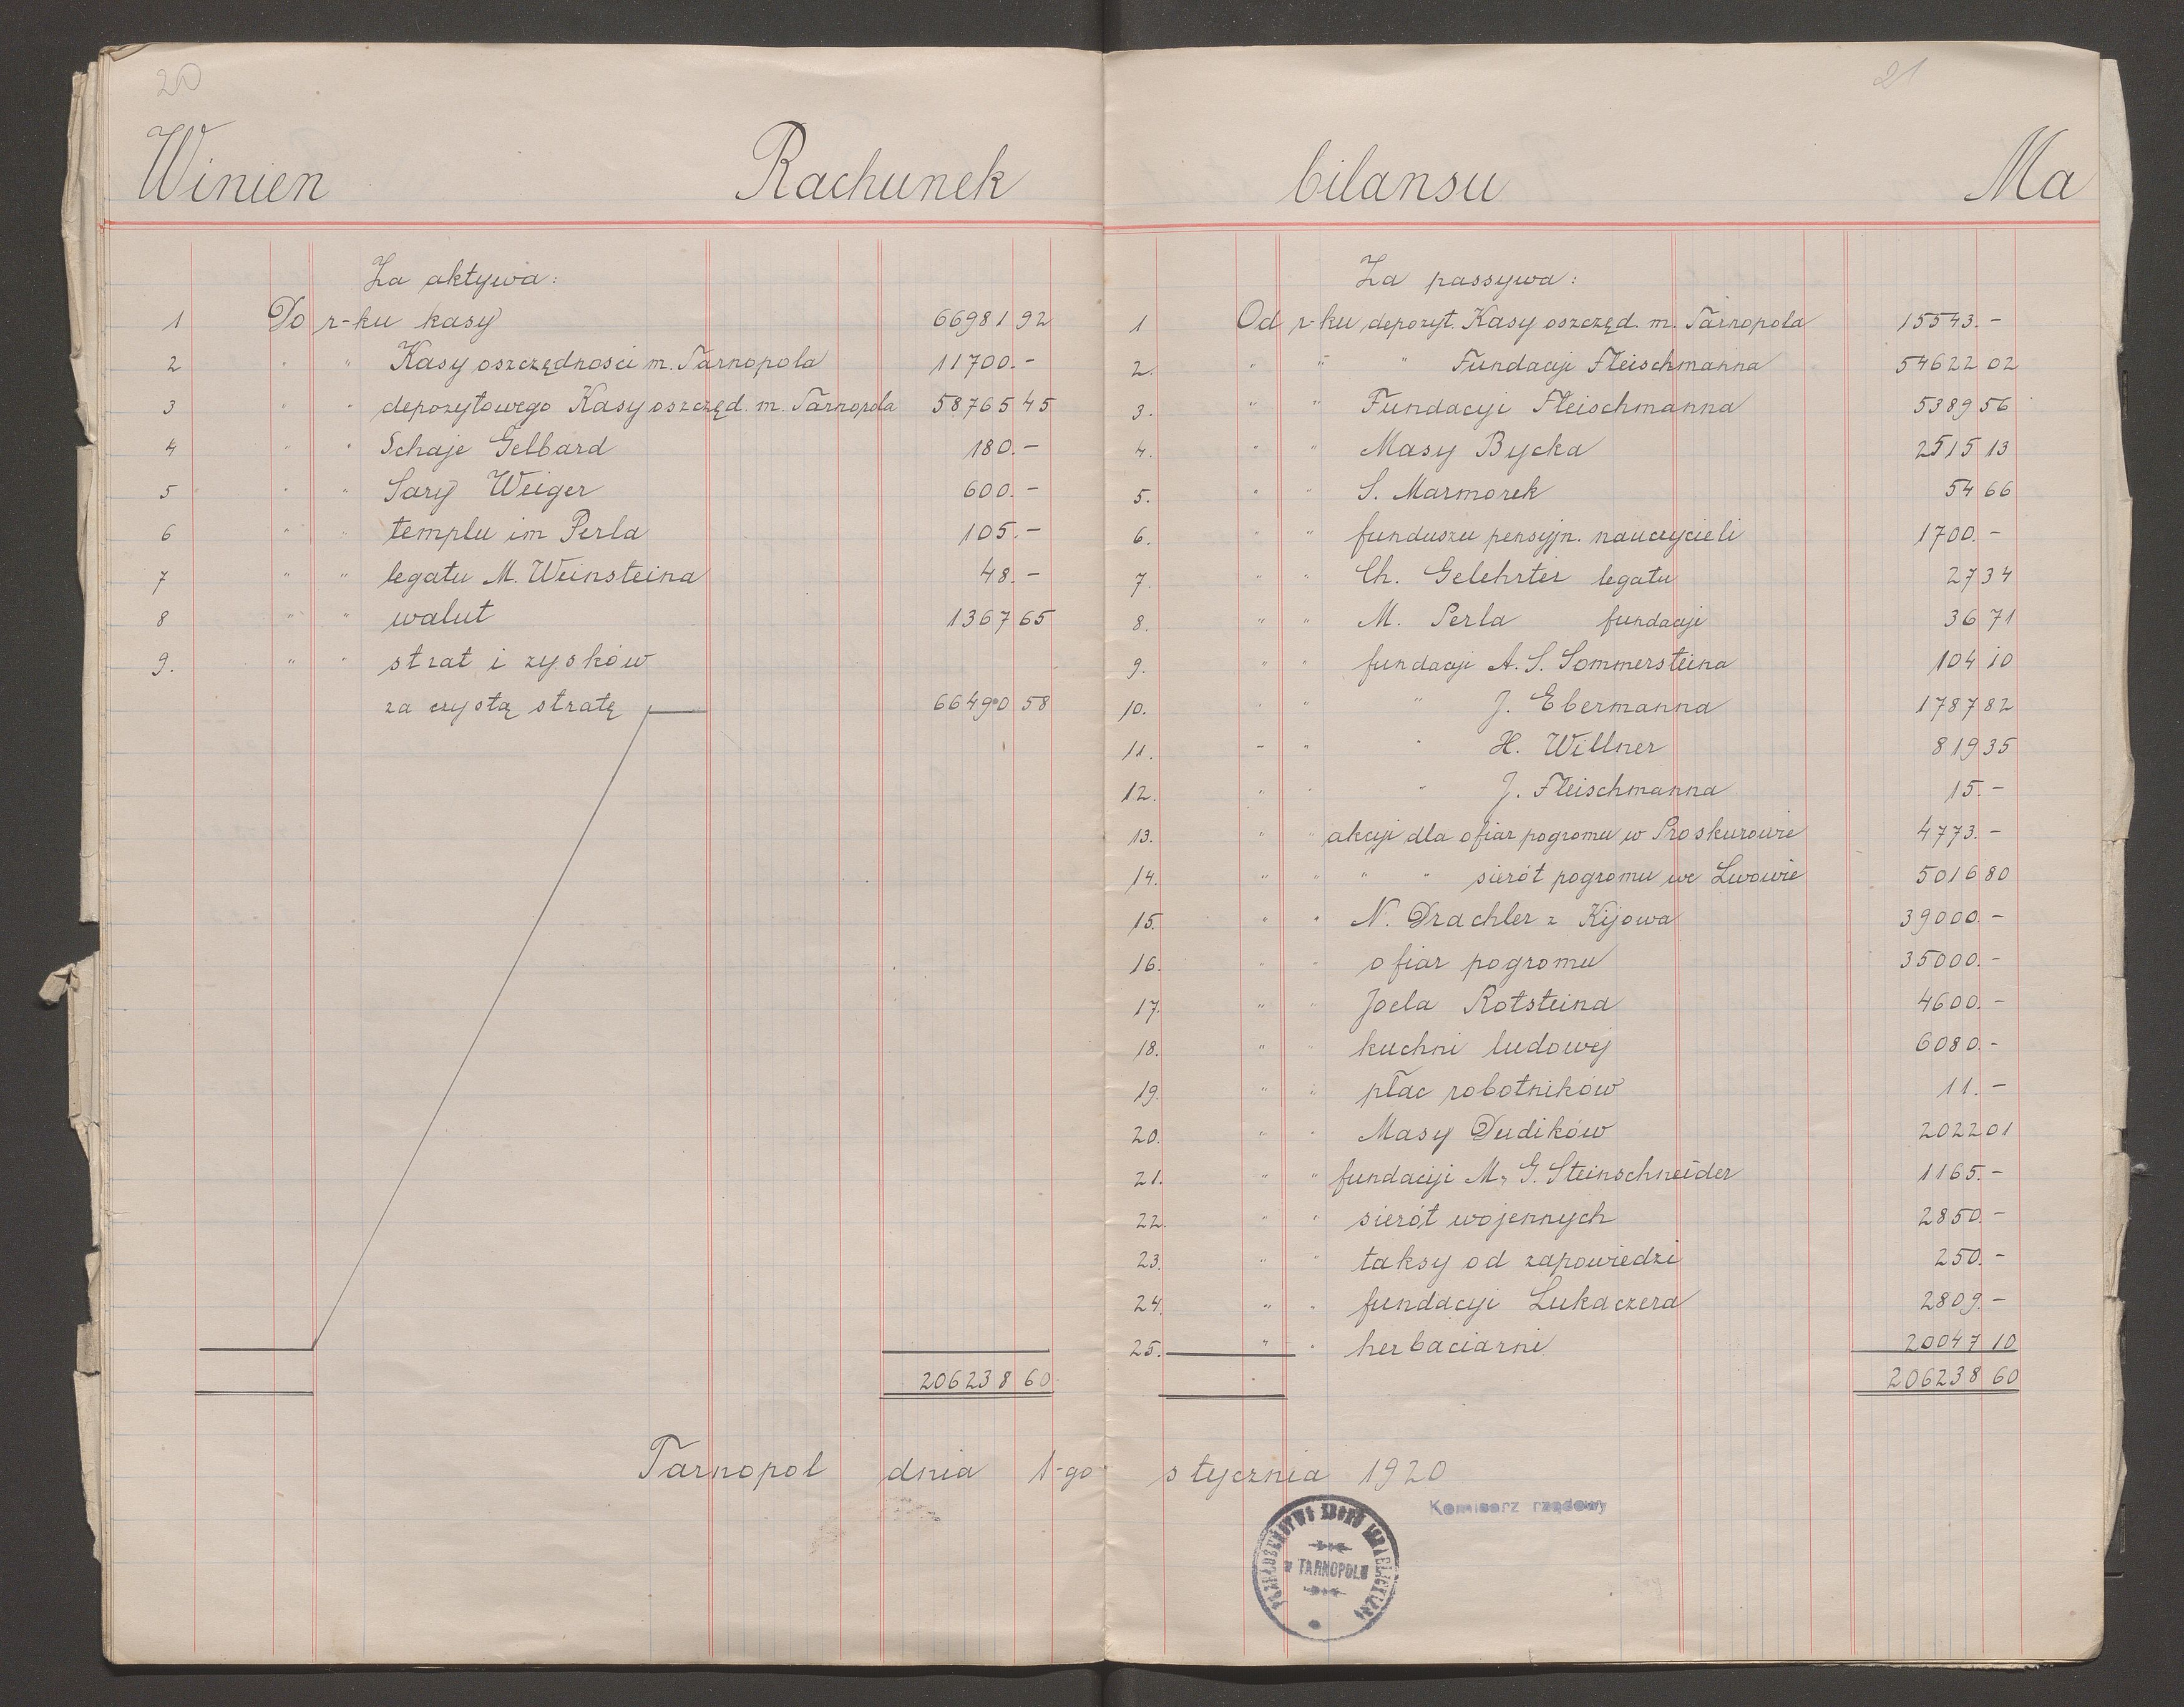 20
Winien Rachunek
Za aktywa:
1 Do r-ku kasy 66981 92
2 " " Kasy oszczędności m. Tarnopola 11700.-
3 " " depozytowego Kasy oszczęd. m. Tarnopola 58765 45
4 " " Schaje Gelbard 180.-
5 " " Sary Weiger 600.-
6 " " templu im Perla 105.-
7 " " legatu M. Weinsteina 48.-
8 " " walut 1367 65
9. " " strat i zysków
za czystą stratę 66490 58
206238 60
Tarnopol dnia 1-go
21
bilansu Ma
Za passywa:
1 Od r-ku depozyt. Kasy oszczęd. m. Tarnopola 15543.-
2. " " " Fundacji Fleischmanna 54622 02
3. " " Fundacyi Fleischmanna 5389 56
4. " " Masy Bycka 2515 13
5. " " S. Marmorek 54 66
6. " " funduszu pensyjn. nauczycieli 1700.-
7. " " Ch. Gelehrter legatu 27 34
8. " " M. Perla fundacji 36 71
9. " " fundacji A. S. Sommersteina 104 10
10. " " " J. Ebermanna 1787 82
11. " " " H. Willner 819 35
12. " " " J. Fleischmanna 15.-
13. " " akcyi dla ofiar pogromu w Proskurowie 4773.-
14. " " " " sierót pogromu we Lwowie 5016 80
15. " " N. Drachler z Kijowa 39000.-
16. " " ofiar pogromu 35000.-
17. " " Joela Rotsteina 4600.-
18. " " kuchni ludowej 6080.-
19. " " płac robotników 11.-
20. " " Masy Dudików 2022 01
21. " " fundacyi M. G. Steinschneider 1165.-
22. " " sierót wojennych 2850.-
23. " " taksy od zapowiedzi 250.-
24. " " fundacyi Lukaczera 2809.-
25. " " herbaciarni 20047 10
206238 60
stycznia 1920
Komisarz rządowy
PRZEŁOŻEŃSTWO ZBORU IZRAELICKIEGO
w TARNOPOLU